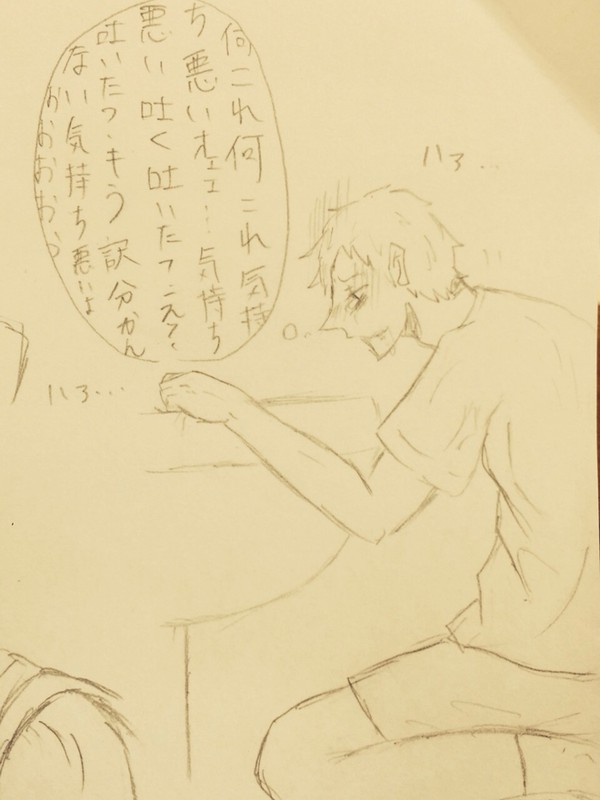 何これ何これ気持
ち悪いオェェ…気持ち
悪い吐く吐いたつ
吐いたつもう訳分かん
ない気持ち悪いよ
おおおおおぅ
ハァ…
ハァ…